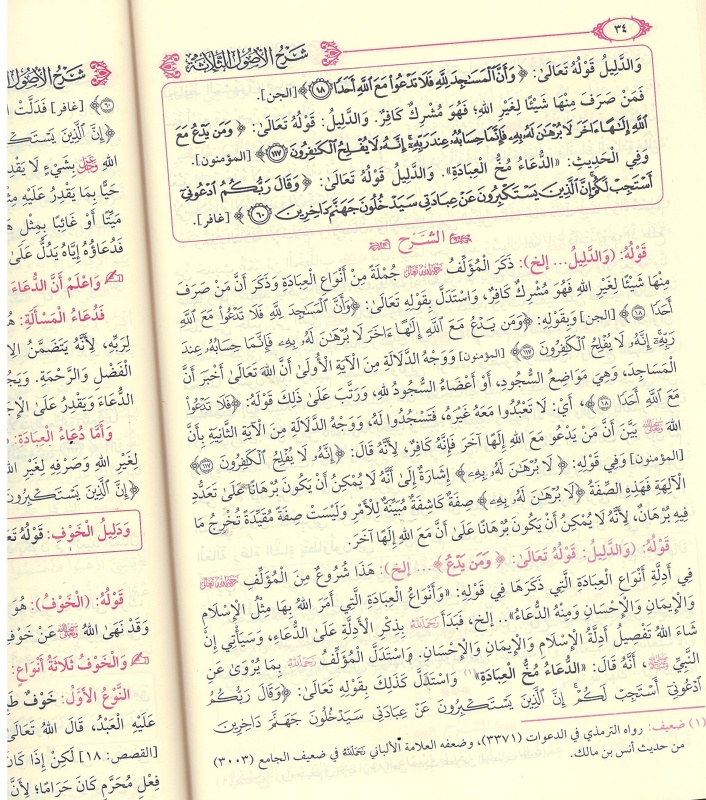 ٣٤
شرح الأصول الثلاثة
وَالدَّلِيلُ قَوْلُهُ تَعَالَى: ﴿ وَأَنَّ ٱلْمَسَٰجِدَ لِلَّهِ فَلَا تَدْعُوا۟ مَعَ ٱللَّهِ أَحَدًا ١٨﴾ [الجن].
فَمَنْ صَرَفَ مِنْهَا شَيْئًا لِغَيْرِ اللهِ؛ فَهُوَ مُشْرِكٌ كَافِرٌ. وَالدَّلِيلُ: قَوْلُهُ تَعَالَى: ﴿ وَمَن يَدْعُ مَعَ
ٱللَّهِ إِلَٰهًا ءَاخَرَ لَا بُرْهَٰنَ لَهُۥ بِهِۦ فَإِنَّمَا حِسَابُهُۥ عِندَ رَبِّهِۦٓ إِنَّهُۥ لَا يُفْلِحُ ٱلْكَٰفِرُونَ ١١٧﴾ [المؤمنون].
وَفِي الْحَدِيثِ: «الدُّعَاءُ مُخُّ الْعِبَادَةِ». وَالدَّلِيلُ قَوْلُهُ تَعَالَى: ﴿ وَقَالَ رَبُّكُمُ ٱدْعُونِىٓ
أَسْتَجِبْ لَكُمْ إِنَّ ٱلَّذِينَ يَسْتَكْبِرُونَ عَنْ عِبَادَتِى سَيَدْخُلُونَ جَهَنَّمَ دَاخِرِينَ ٦٠﴾ [غافر].
الشرح
قَوْلُهُ: (وَالدَّلِيلُ... إلخ): ذَكَرَ الْمُؤَلِّفُ رَحِمَهُ اللهُ تَعَالَى جُمْلَةً مِنْ أَنْوَاعِ الْعِبَادَةِ وَذَكَرَ أَنَّ مَنْ صَرَفَ
مِنْهَا شَيْئًا لِغَيْرِ اللهِ فَهُوَ مُشْرِكٌ كَافِرٌ، وَاسْتَدَلَّ بِقَوْلِهِ تَعَالَى: ﴿وَأَنَّ ٱلْمَسَٰجِدَ لِلَّهِ فَلَا تَدْعُوا۟ مَعَ ٱللَّهِ
أَحَدًا ١٨﴾ [الجن] وَبِقَوْلِهِ: ﴿وَمَن يَدْعُ مَعَ ٱللَّهِ إِلَٰهًا ءَاخَرَ لَا بُرْهَٰنَ لَهُۥ بِهِۦ فَإِنَّمَا حِسَابُهُۥ عِندَ
رَبِّهِۦٓ إِنَّهُۥ لَا يُفْلِحُ ٱلْكَٰفِرُونَ ١١٧﴾ [المؤمنون] وَوَجْهُ الدَّلَالَةِ مِنَ الْآيَةِ الْأُولَىٰ أَنَّ اللهَ تَعَالَىٰ أَخْبَرَ أَنَّ
الْمَسَاجِدَ، وَهِيَ مَوَاضِعُ السُّجُودِ، أَوْ أَعْضَاءُ السُّجُودِ لِلهِ، وَرَتَّبَ عَلَىٰ ذَلِكَ قَوْلَهُ: ﴿فَلَا تَدْعُوا۟
مَعَ ٱللَّهِ أَحَدًا ١٨﴾، أَيْ: لَا تَعْبُدُوا مَعَهُ غَيْرَهُ، فَتَسْجُدُوا لَهُ، وَوَجْهُ الدَّلَالَةِ مِنَ الْآيَةِ الثَّانِيَةِ بِأَنَّ
اللهَ بَيَّنَ أَنَّ مَنْ يَدْعُو مَعَ اللهِ إِلَٰهًا آخَرَ فَإِنَّهُ كَافِرٌ، لِأَنَّهُ قَالَ: ﴿إِنَّهُۥ لَا يُفْلِحُ ٱلْكَٰفِرُونَ ١١٧﴾
[المؤمنون] وَفِي قَوْلِهِ: ﴿ لَا بُرْهَٰنَ لَهُۥ بِهِۦ ﴾ إِشَارَةٌ إِلَىٰ أَنَّهُ لَا يُمْكِنُ أَنْ يَكُونَ بُرْهَانًا عَلَىٰ تَعَدُّدِ
الْآلِهَةِ فَهَذِهِ الصِّفَةُ ﴿لَا بُرْهَٰنَ لَهُۥ بِهِۦ﴾ صِفَةٌ كَاشِفَةٌ مُبَيِّنَةٌ لِلْأَمْرِ وَلَيْسَتْ صِفَةً مُقَيِّدَةً تُخْرِجُ مَا
فِيهِ بُرْهَانٌ، لِأَنَّهُ لَا يُمْكِنُ أَنْ يَكُونَ بُرْهَانًا عَلَىٰ أَنَّ مَعَ اللهِ إِلَٰهًا آخَرَ.
قَوْلُهُ: (وَالدَّلِيلُ: قَوْلُهُ تَعَالَى: ﴿ وَمَن يَدْعُ ﴾... إلخ): هَذَا شُرُوعٌ مِنَ الْمُؤَلِّفِ رَحِمَهُ اللهُ تَعَالَى
فِي أَدِلَّةِ أَنْوَاعِ الْعِبَادَةِ الَّتِي ذَكَرَهَا فِي قَوْلِهِ: «وَأَنْوَاعُ الْعِبَادَةِ الَّتِي أَمَرَ اللهُ بِهَا مِثْلُ الْإِسْلَامِ
وَالْإِيمَانِ وَالْإِحْسَانِ وَمِنْهُ الدُّعَاءُ».. إلخ، فَبَدَأَ رَحِمَهُ اللهُ بِذِكْرِ الْأَدِلَّةِ عَلَىٰ الدُّعَاءِ، وَسَيَأْتِي إِنْ
شَاءَ اللهُ تَفْصِيلُ أَدِلَّةِ الْإِسْلَامِ وَالْإِيمَانِ وَالْإِحْسَانِ. وَاسْتَدَلَّ الْمُؤَلِّفُ رَحِمَهُ اللهُ بِمَا يُرْوَىٰ عَنِ
النَّبِيِّ ﷺ، أَنَّهُ قَالَ: «الدُّعَاءُ مُخُّ الْعِبَادَةِ»(١) وَاسْتَدَلَّ كَذَلِكَ بِقَوْلِهِ تَعَالَىٰ: ﴿وَقَالَ رَبُّكُمُ
ٱدْعُونِىٓ أَسْتَجِبْ لَكُمْ إِنَّ ٱلَّذِينَ يَسْتَكْبِرُونَ عَنْ عِبَادَتِى سَيَدْخُلُونَ جَهَنَّمَ دَاخِرِينَ
(١) ضعيف: رواه الترمذي في الدعوات (٣٣٧١)، وضعفه العلامة الألباني رَحِمَهُ اللهُ في ضعيف الجامع (٣٠٠٣)
من حديث أنس بن مالك.
شرح الأصول
٦٠﴾ [غافر] فَدَلَّتْ
﴿إِنَّ ٱلَّذِينَ يَسْتَكْبِرُونَ
اللهِ بِشَيْءٍ لَا يَقْدِرُ
حَيًّا بِمَا يَقْدِرُ عَلَيْهِ
مَيِّتًا أَوْ غَائِبًا بِمِثْلِ
فَدُعَاؤُهُ إِيَّاهُ يَدُلُّ عَلَىٰ
وَاعْلَمْ أَنَّ الدُّعَاءَ
فَدُعَاءُ الْمَسْأَلَةِ:
لِرَبِّهِ، لِأَنَّهُ يَتَضَمَّنُ
الْفَضْلِ وَالرَّحْمَةِ.
الدُّعَاءَ وَيَقْدِرُ عَلَىٰ
وَأَمَّا دُعَاءُ الْعِبَادَةِ:
لِغَيْرِ اللهِ وَصَرْفِهِ لِغَيْرِ
﴿إِنَّ ٱلَّذِينَ يَسْتَكْبِرُونَ
وَدَلِيلُ الْخَوْفِ: قَوْلُهُ
قَوْلُهُ: (الْخَوْفُ): هُوَ
وَقَدْ نَهَى اللهُ عَنْ
وَالْخَوْفُ ثَلَاثَةُ أَنْوَاعٍ:
النَّوْعُ الْأَوَّلُ: خَوْفٌ
عَلَيْهِ الْعَبْدُ، قَالَ اللهُ
[القصص: ١٨] لَكِنْ إِذَا كَانَ
فِعْلِ مُحَرَّمٍ كَانَ حَرَامًا؛